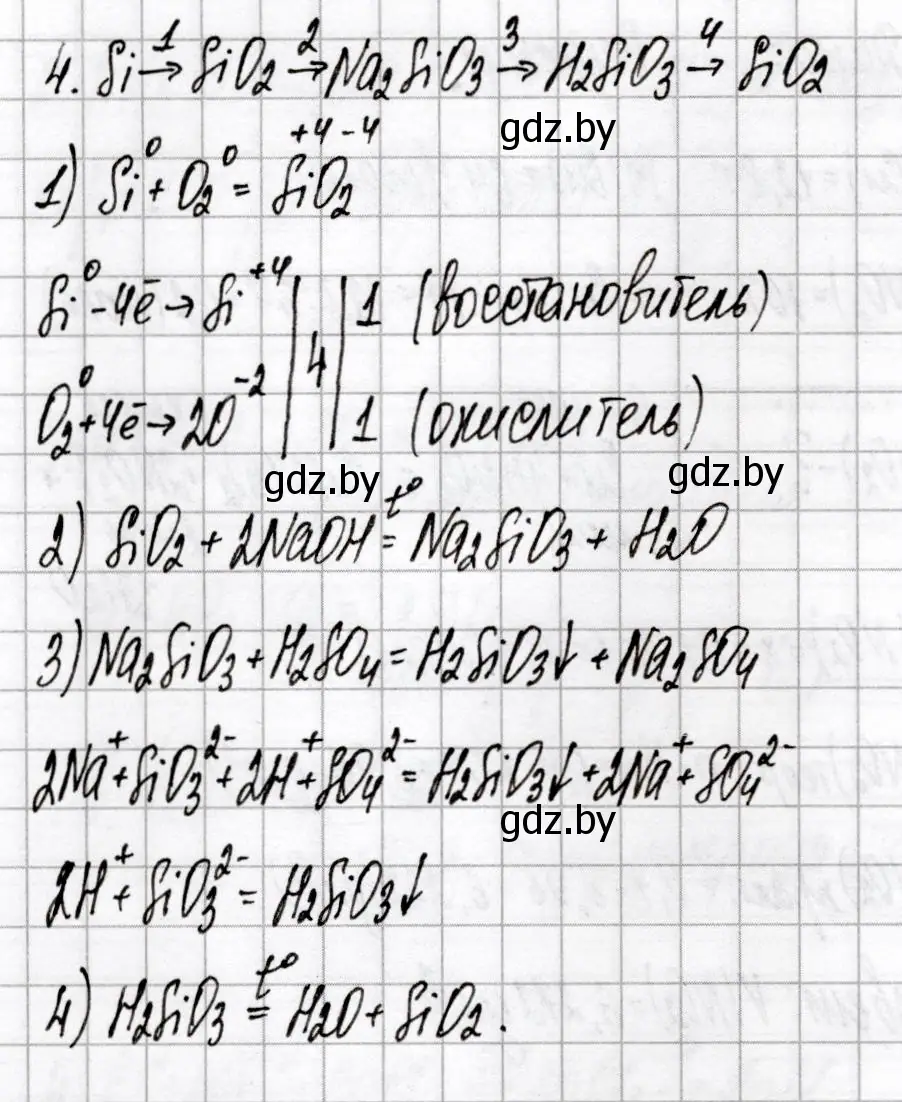 4. Si →¹ SiO₂ →² Na₂SiO₃ →³ H₂SiO₃ →⁴ SiO₂
gdz.by
+4 -4
1) Si⁰ + O₂⁰ = SiO₂
Si⁰ - 4ē → Si⁺⁴ | | 1 (восстановитель)
4
O₂⁰ + 4ē → 2O⁻² | | 1 (окислитель)
gdz.by
gdz.by
2) SiO₂ + 2NaOH =^{t°} Na₂SiO₃ + H₂O
3) Na₂SiO₃ + H₂SO₄ = H₂SiO₃↓ + Na₂SO₄
2Na⁺ + SiO₃²⁻ + 2H⁺ + SO₄²⁻ = H₂SiO₃↓ + 2Na⁺ + SO₄²⁻
gdz.by
2H⁺ + SiO₃²⁻ = H₂SiO₃↓
4) H₂SiO₃ =^{t°} H₂O + SiO₂.